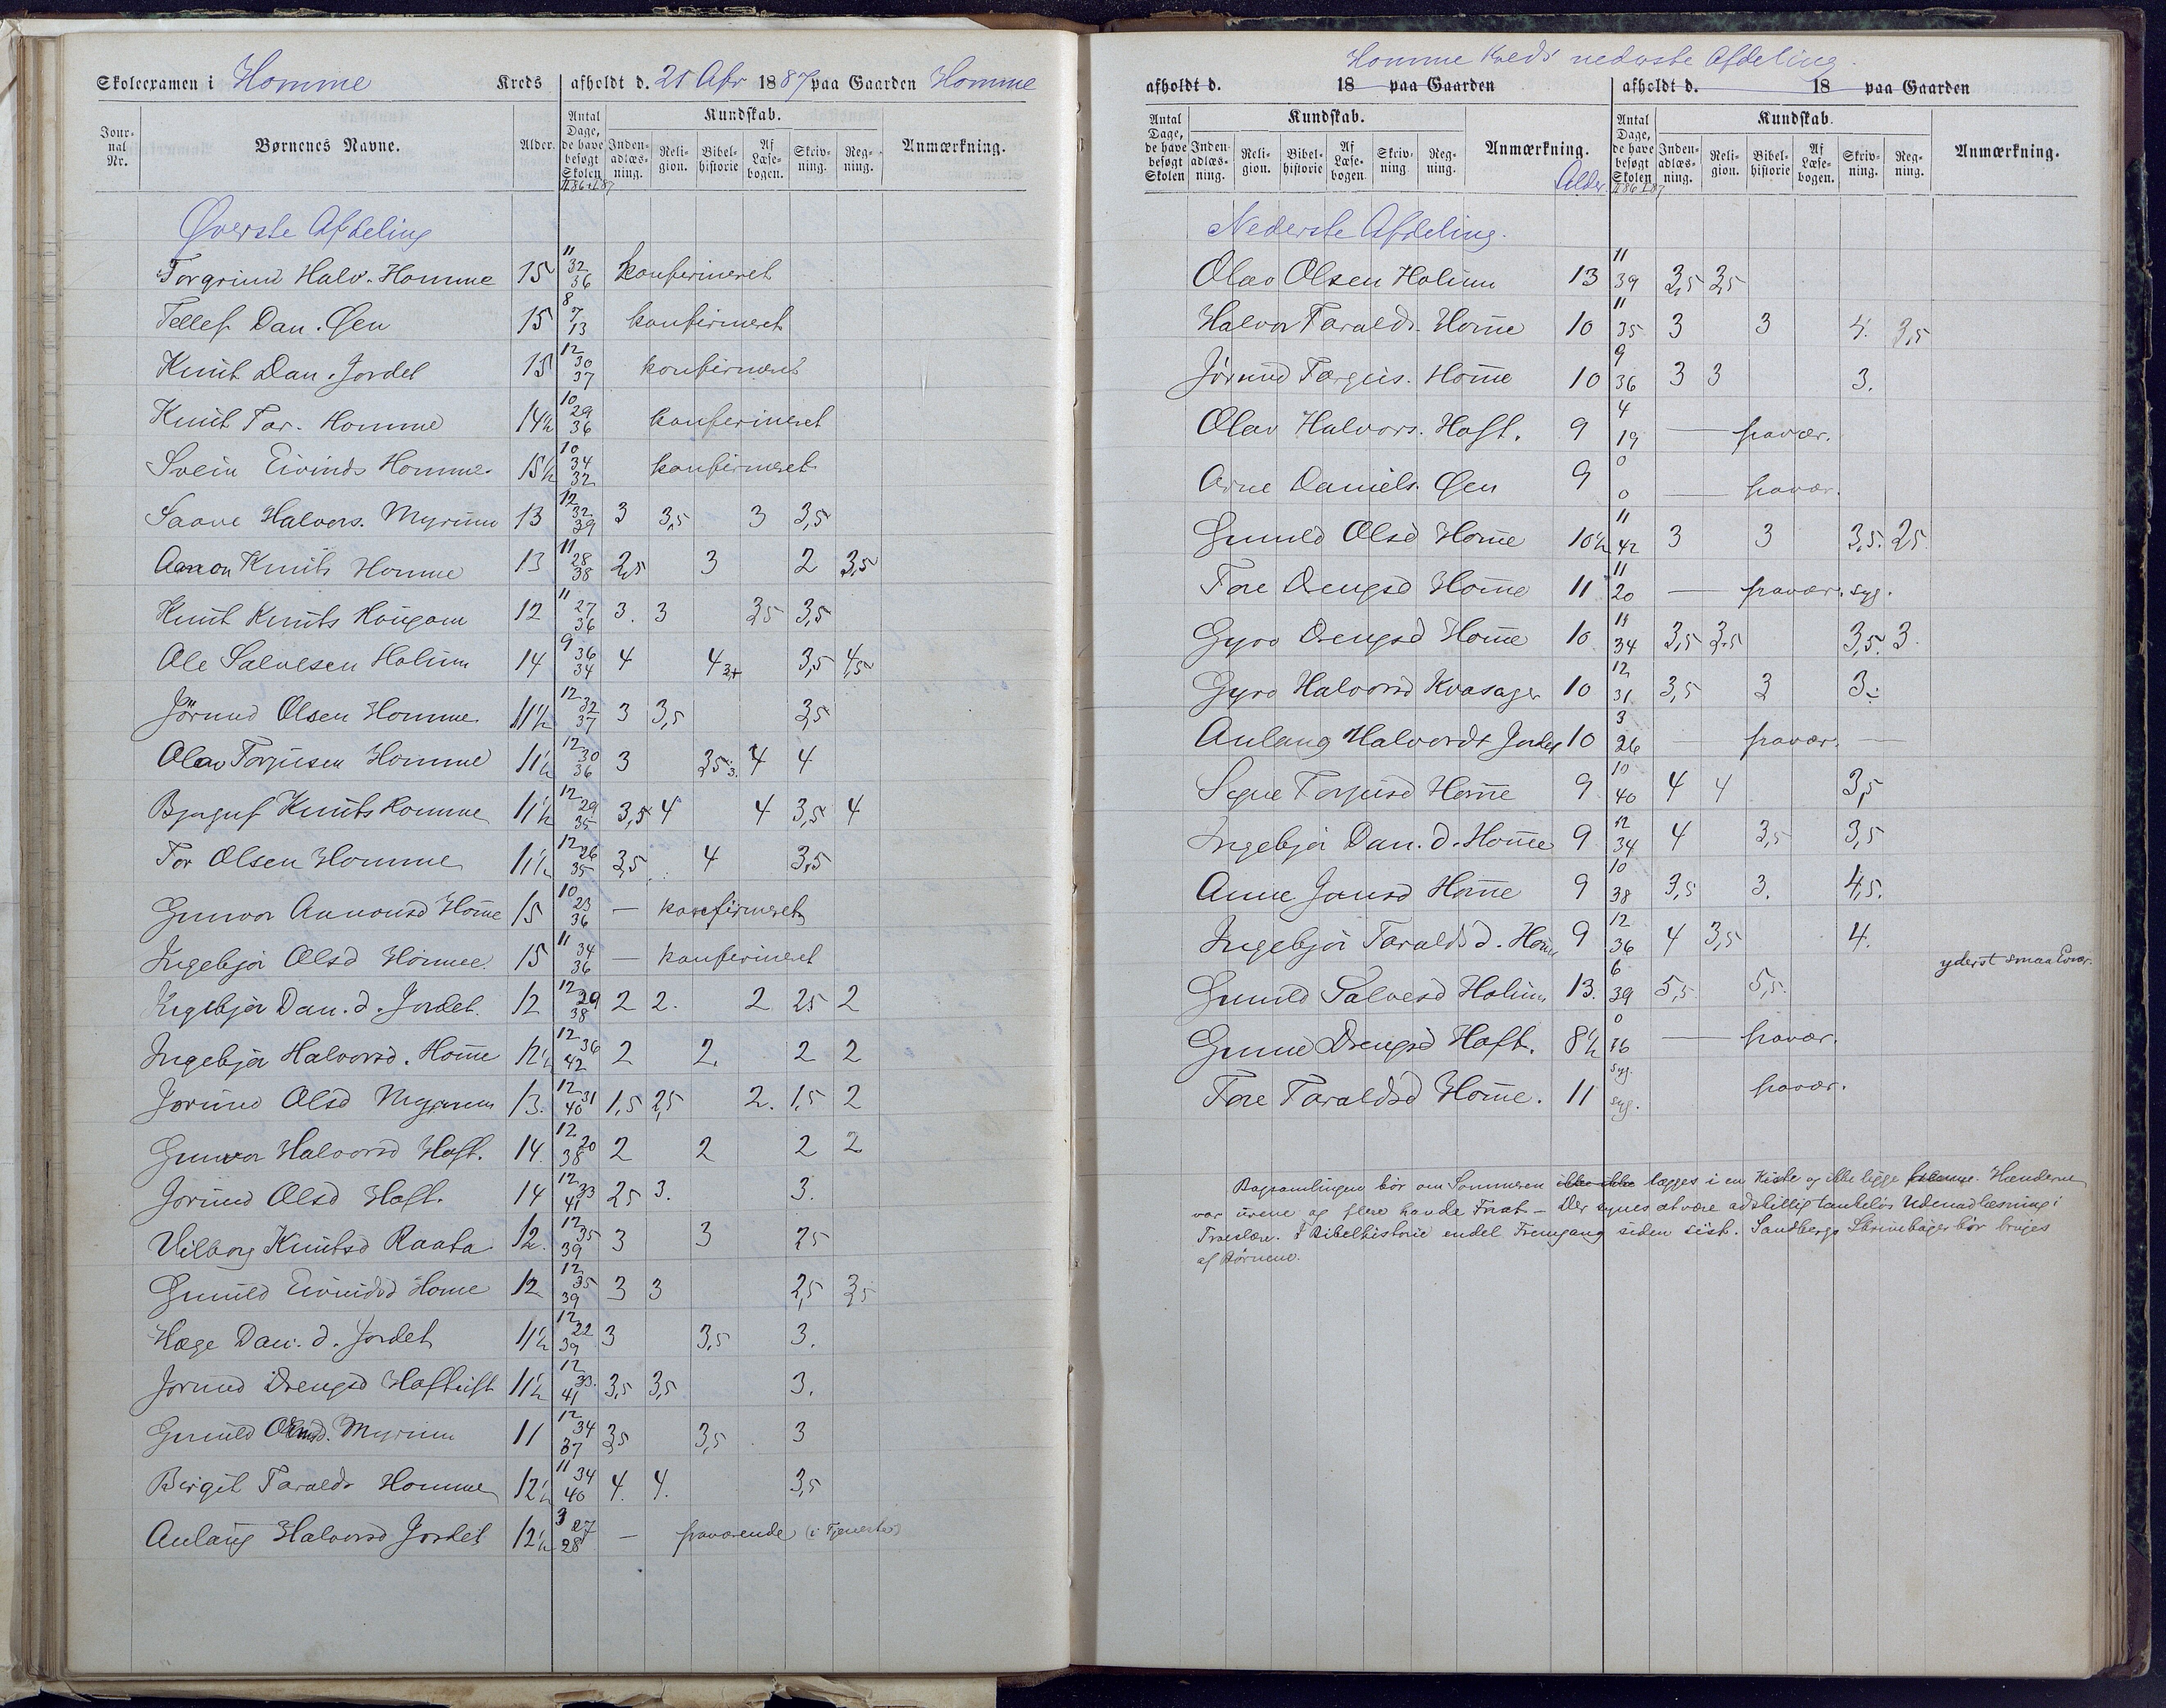 Skoleexamen i Homme Kreds afholdt d. 21 Apr 1887 paa Gaarden Homme
Jour-nal Nr. Børnenes Navne. Alder. Antal Dage, de have besøgt Skolen Kundskab. Inden-adlæs-ning. Reli-gion. Bibel-historie Af Læse-bogen. Skriv-ning. Reg-ning. Anmærkning.
II 86 I 87
Øverste Afdeling
Torgrim Halv. Homme 15 11 32 36 konfirmeret
Tellef Dan. Øen 15 8 7 13 konfirmeret
Knut Dan. Jordet 15 12 30 37 konfirmeret
Knut Tar. Homme 14½ 10 29 36 konfirmeret
Svein Eivinds Homme 15½ 10 34 32 konfirmeret
Saave Halvors. Myrum 13 12 32 39 3 3,5 3 3,5
Aanon Knuts Homme 13 11 28 38 2,5 3 2 3,5
Knut Knuts Haugom 12 11 27 36 3. 3 3,5 3,5
Ole Salvesen Holum 14 9 36 34 4 4 3+ 3,5 4,5
Jørund Olsen Homme 11½ 12 32 37 3 3,5 3,5
Olav Torjusen Homme 11½ 12 30 36 3 3,5 3. 4 4
Bjorguf Knuts Homme 11½ 12 29 35 3,5 4 4 3,5 4
Tor Olsen Homme 11½ 12 26 35 3,5 4 3,5
Gunvor Aanonsd Home 15 10 23 36 — konfirmeret
Ingebjør Olsd Homme 15 11 34 36 — konfirmeret
Ingebjør Dan. d. Jordet 12 12 29 38 2 2. 2 2,5 2
Ingebjør Halvorsd. Home 12½ 12 36 42 2 2. 2 2
Jorund Olsd Myrum 13. 12 31 40 1,5 2,5 2. 1,5 2
Gunvor Halvorsd Haft. 14 12 20 38 2 2 2 2
Jorund Olsd Haft. 14 12 33 41 2,5 3. 3.
Vilborg Knutsd Raata 12. 12 35 39 3 3 2,5
Gunild Eivindsd Home 12 12 35 39 3 3 2,5 3,5
Hæge Dan. d. Jordet 11½ 12 22 39 3 3,5 3.
Jorund Drengsd Haftuft 11½ 12 33. 41 3,5 3,5 3.
Gunild Myrum 11 12 34 37 3,5 3,5 3
Birgit Taralds Homme 12½ 11 34 40 4. 4. 3,5
Aulaug Halvorsd Jordet 12½ 3 27 28 — fraværende (i Tjeneste)
Homme Kreds nederste Afdeling.
afholdt d. 18 paa Gaarden afholdt d. 18 paa Gaarden
Antal Dage, de have besøgt Skolen Kundskab. Inden-adlæs-ning. Reli-gion. Bibel-historie Af Læse-bogen. Skriv-ning Reg-ning. Anmærkning. Alder. Antal Dage, de have besøgt Skolen Kundskab. Inden-adlæs-ning. Reli-gion. Bibel-historie Af Læse-bogen. Skriv-ning. Reg-ning. Anmærkning.
II 86 I 87
Nederste Afdeling.
Olav Olsen Holum 13 11 39 3,5 3,5
Halvor Taralds. Home 10 11 35 3 3 4. 3,5
Jørund Torgus. Home 10 9 36 3 3 3.
Olav Halvors. Haft. 9 4 19 — fravær.
Arne Daniels. Øen 9 0 0 — fravær.
Gunild Olsd Home 10½ 11 42 3 3 3,5. 2,5
Tore Drengsd Home 11 11 20 — fravær. syg.
Gyro Drengsd Home 10 11 34 3,5 3,5 3,5. 3
Gyro Halvorsd Kvasager 10 12 31 3,5 3 3÷
Aulaug Halvordt Jordet 10 3 26 — fravær. —
Signe Torjusd Home 9 10 40 4 4 3,5
Ingebjør Dan. d. Home 9 12 34 4 3,5 3,5
Anne Jonsd Home 9 10 38 3,5 3. 4,5.
Ingebjør Taraldsd. Home 9 12 36 4 3,5 4.
Gunild Salvesd Holum 13. 6 39 5,5 5,5. yderst smaa Evner.
Gunne Drengsd Haft. 8½ 0 16 — fravær.
Tore Taraldsd Home. 11 syg. syg. fravær.
Bogsamlingen bør om Sommeren ikke ikke lægges i en Kiste og ikke ligge fremme. Hænderne
var urene og flere havde Fnat — Der synes at være adskillig tankeløs Udenadlæsning i
Troeslære. I Bibelhistorie endel Fremgang siden sidst. Sandbergs Skrivebøger bør bruges
af Børnene.